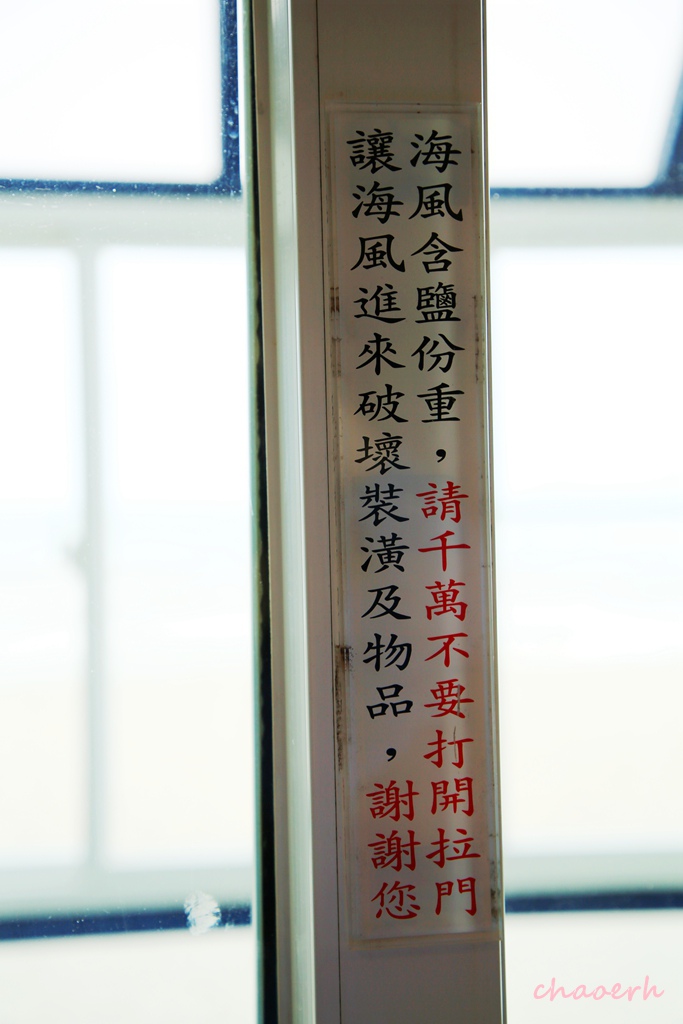 海風含鹽份重，請千萬不要打開拉門
讓海風進來破壞裝潢及物品，謝謝您
chaoerh